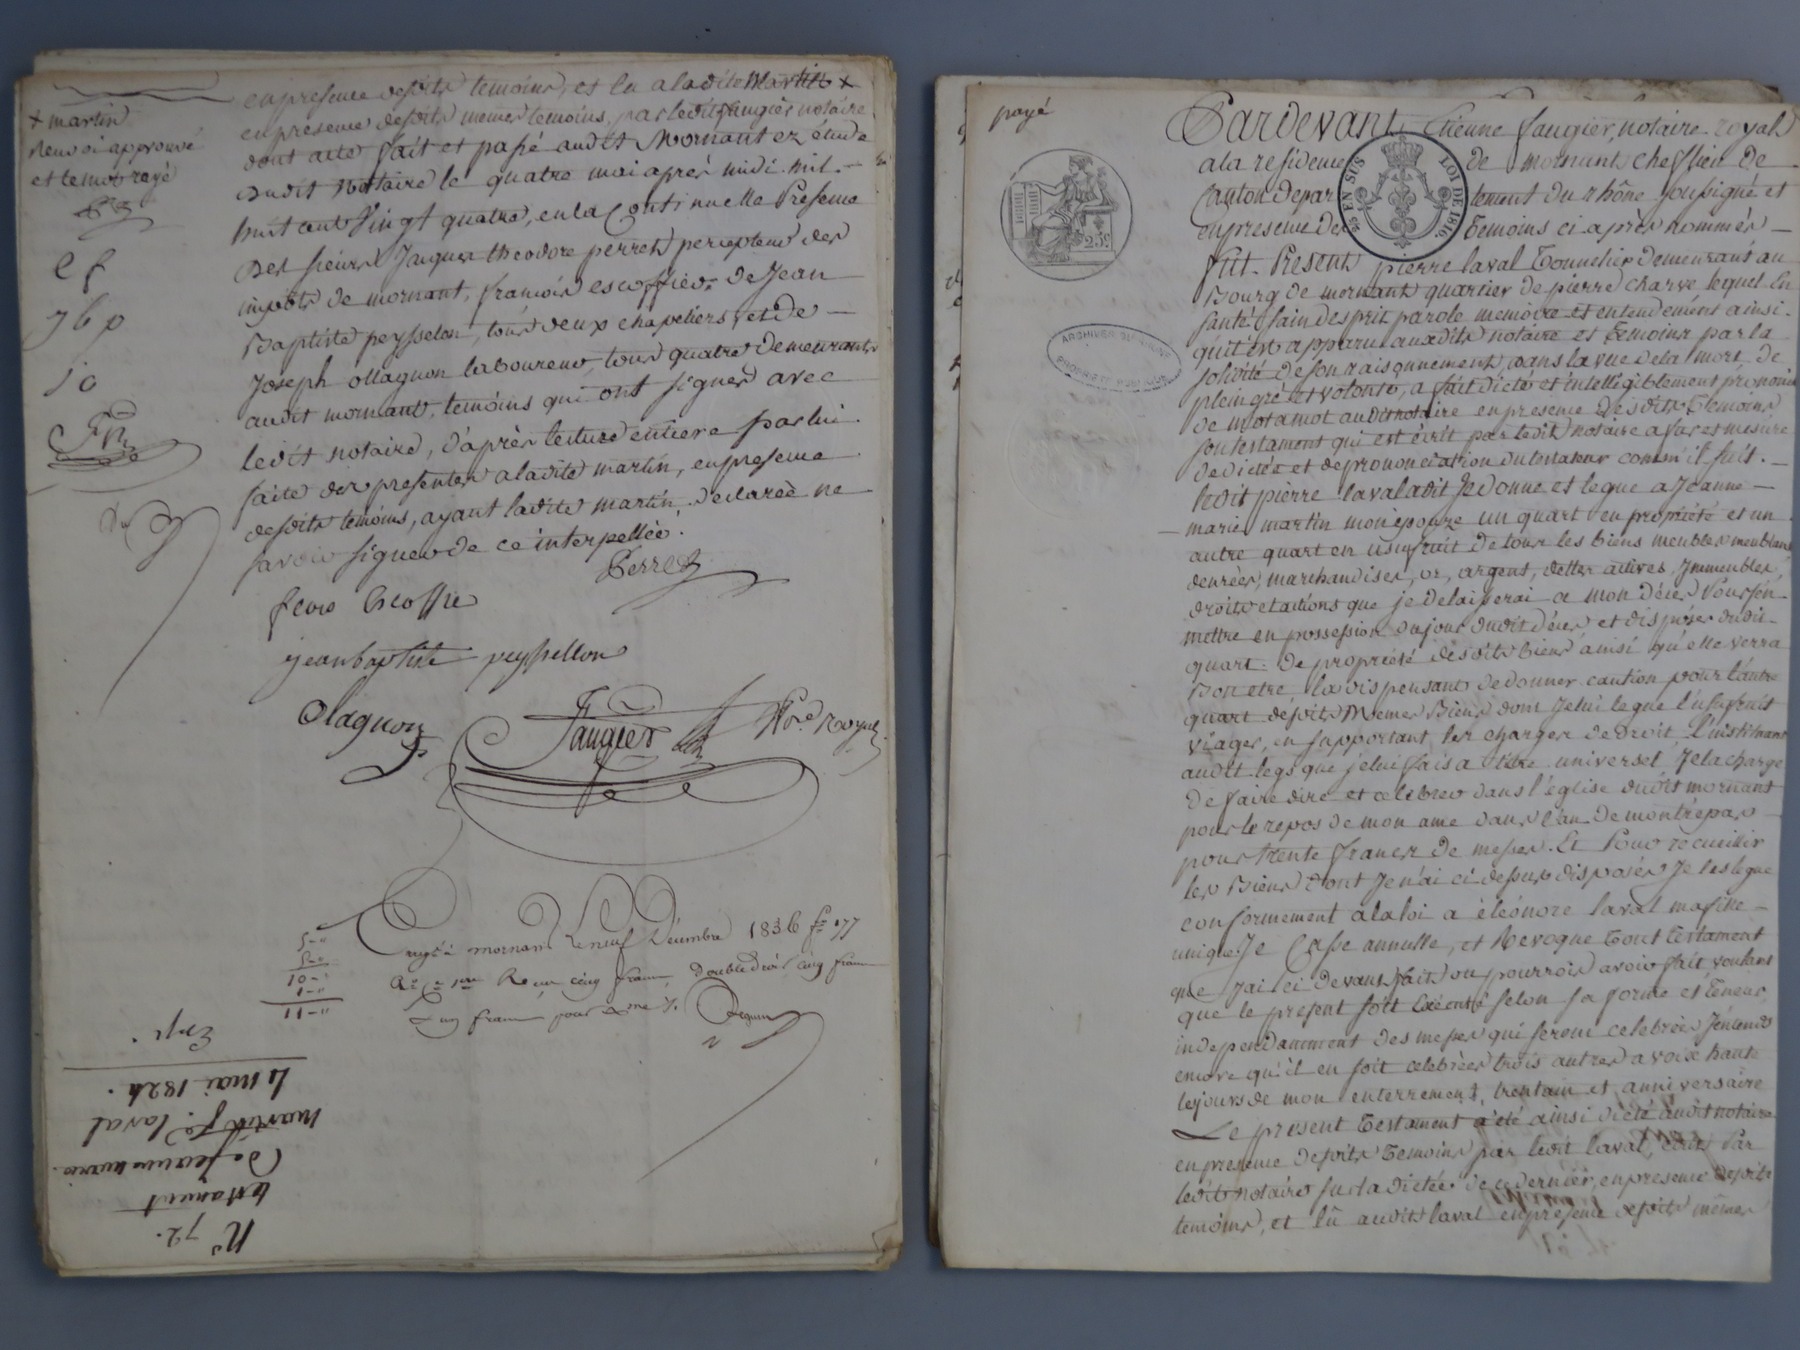 en presence desdits temoins, et lu a ladite Martin +
en presence desdits memes temoins, par ledit faugier notaire
dont acte fait et passé audit Mornant ez étude
dudit Notaire le quatre mai après midi mil
huit cent vingt quatre, en la Continuelle Presence
Des sieurs Jacques theodore perret percepteur des
impots de mornant, francois escoffier, de Jean
Baptiste peysselon, tous deux chapeliers et de
Joseph ollagnon laboureur, tous quatre demeurants
audit mornant, temoins qui ont signer avec
ledit notaire, d'après lecture entiere par lui
faite des presentes a ladite martin, en presence
desdits temoins, ayant ladite martin, declarée ne
savoir signer de ce interpellée.
+ martin
Renvoi approuvé
et le mot rayé
e f
j b p
j o
Perret
jeanbaptiste peyssellon
Olagnon
Faugier
Nre Royal
5-"
5-"
10-"
1-"
11-"
mornant le neuf Décembre 1836 fo 177
Reçu cinq francs, Double Droit cinq francs
un franc pour
Exp.
4 mai 1824.
martin fe laval
De jeanne marie
testament
No 72.
payé
Pardevant Etienne faugier, notaire royal
a la residence de mornant chef lieu de
Canton departement du rhône soussigné et
en presence des temoins ci après nommés
25 EN SUS
LOI DE 1816.
25c
ARCHIVES DU RHÔNE
PROPRIÉTÉ PUBLIQUE
fut Present pierre laval Tonnelier demeurant au
Bourg de mornant quartier de pierre charve lequel En
santé, sain desprit parole memoire et entendement ainsi
qu'il est apparu auxdits notaire et temoins par la
solidité de son raisonnement, dans la vue de la mort, de
plein gré et volonté, a fait dicté et intelligiblement prononcé
de mot a mot audit notaire en presence desdits temoins,
son testament qui est écrit par ledit notaire a fur et mesure
de dictée et de prononciation du testateur comm'il suit.
ledit pierre laval a dit Je donne et legue a Jeanne
marie martin mon épouze un quart en propriété et un
autre quart en usufruit de tous les biens meubles meublants
denrées, marchandises, or, argent, dettes actives, Immeubles,
droits et actions que je delaisserai a mon décès Pour s'en
mettre en possession du jour dudit décès et disposer dudit
quart de propriété desdits biens ainsi qu'elle verra
Bon etre, la dispensant de donner caution pour l'autre
quart desdits Memes Biens dont Je lui legue l'usufruit
viager, en supportant les charges de droit, L'instituant
audit legs que je lui fais a titre universel, Je la charge
de faire dire et celebrer dans l'église dudit mornant
pour le repos de mon ame dans l'an de mon trépas
pour trente francs de messes. Et Pour recueillir
les Biens dont Je n'ai ci dessus disposés Je les legue
conformement a la loi a éléonore laval ma fille
unique. Je Casse annulle, et Revoque tout testament
que J'ai ci devant fait ou pourrois avoir fait, voulant
que le present soit exécuté selon sa forme et teneur,
independamment des messes qui seront celebrées J'entends
encore qu'il en soit celebrées trois autres a voix haute
les jours de mon enterrement, trentain et anniversaire
Le present testament a été ainsi dicté audit notaire
en presence desdits temoins par ledit laval, écrit Par
ledit notaire sur la dictée de ce dernier, en presence desdits
temoins, et lû audit laval en presence desdits mêmes